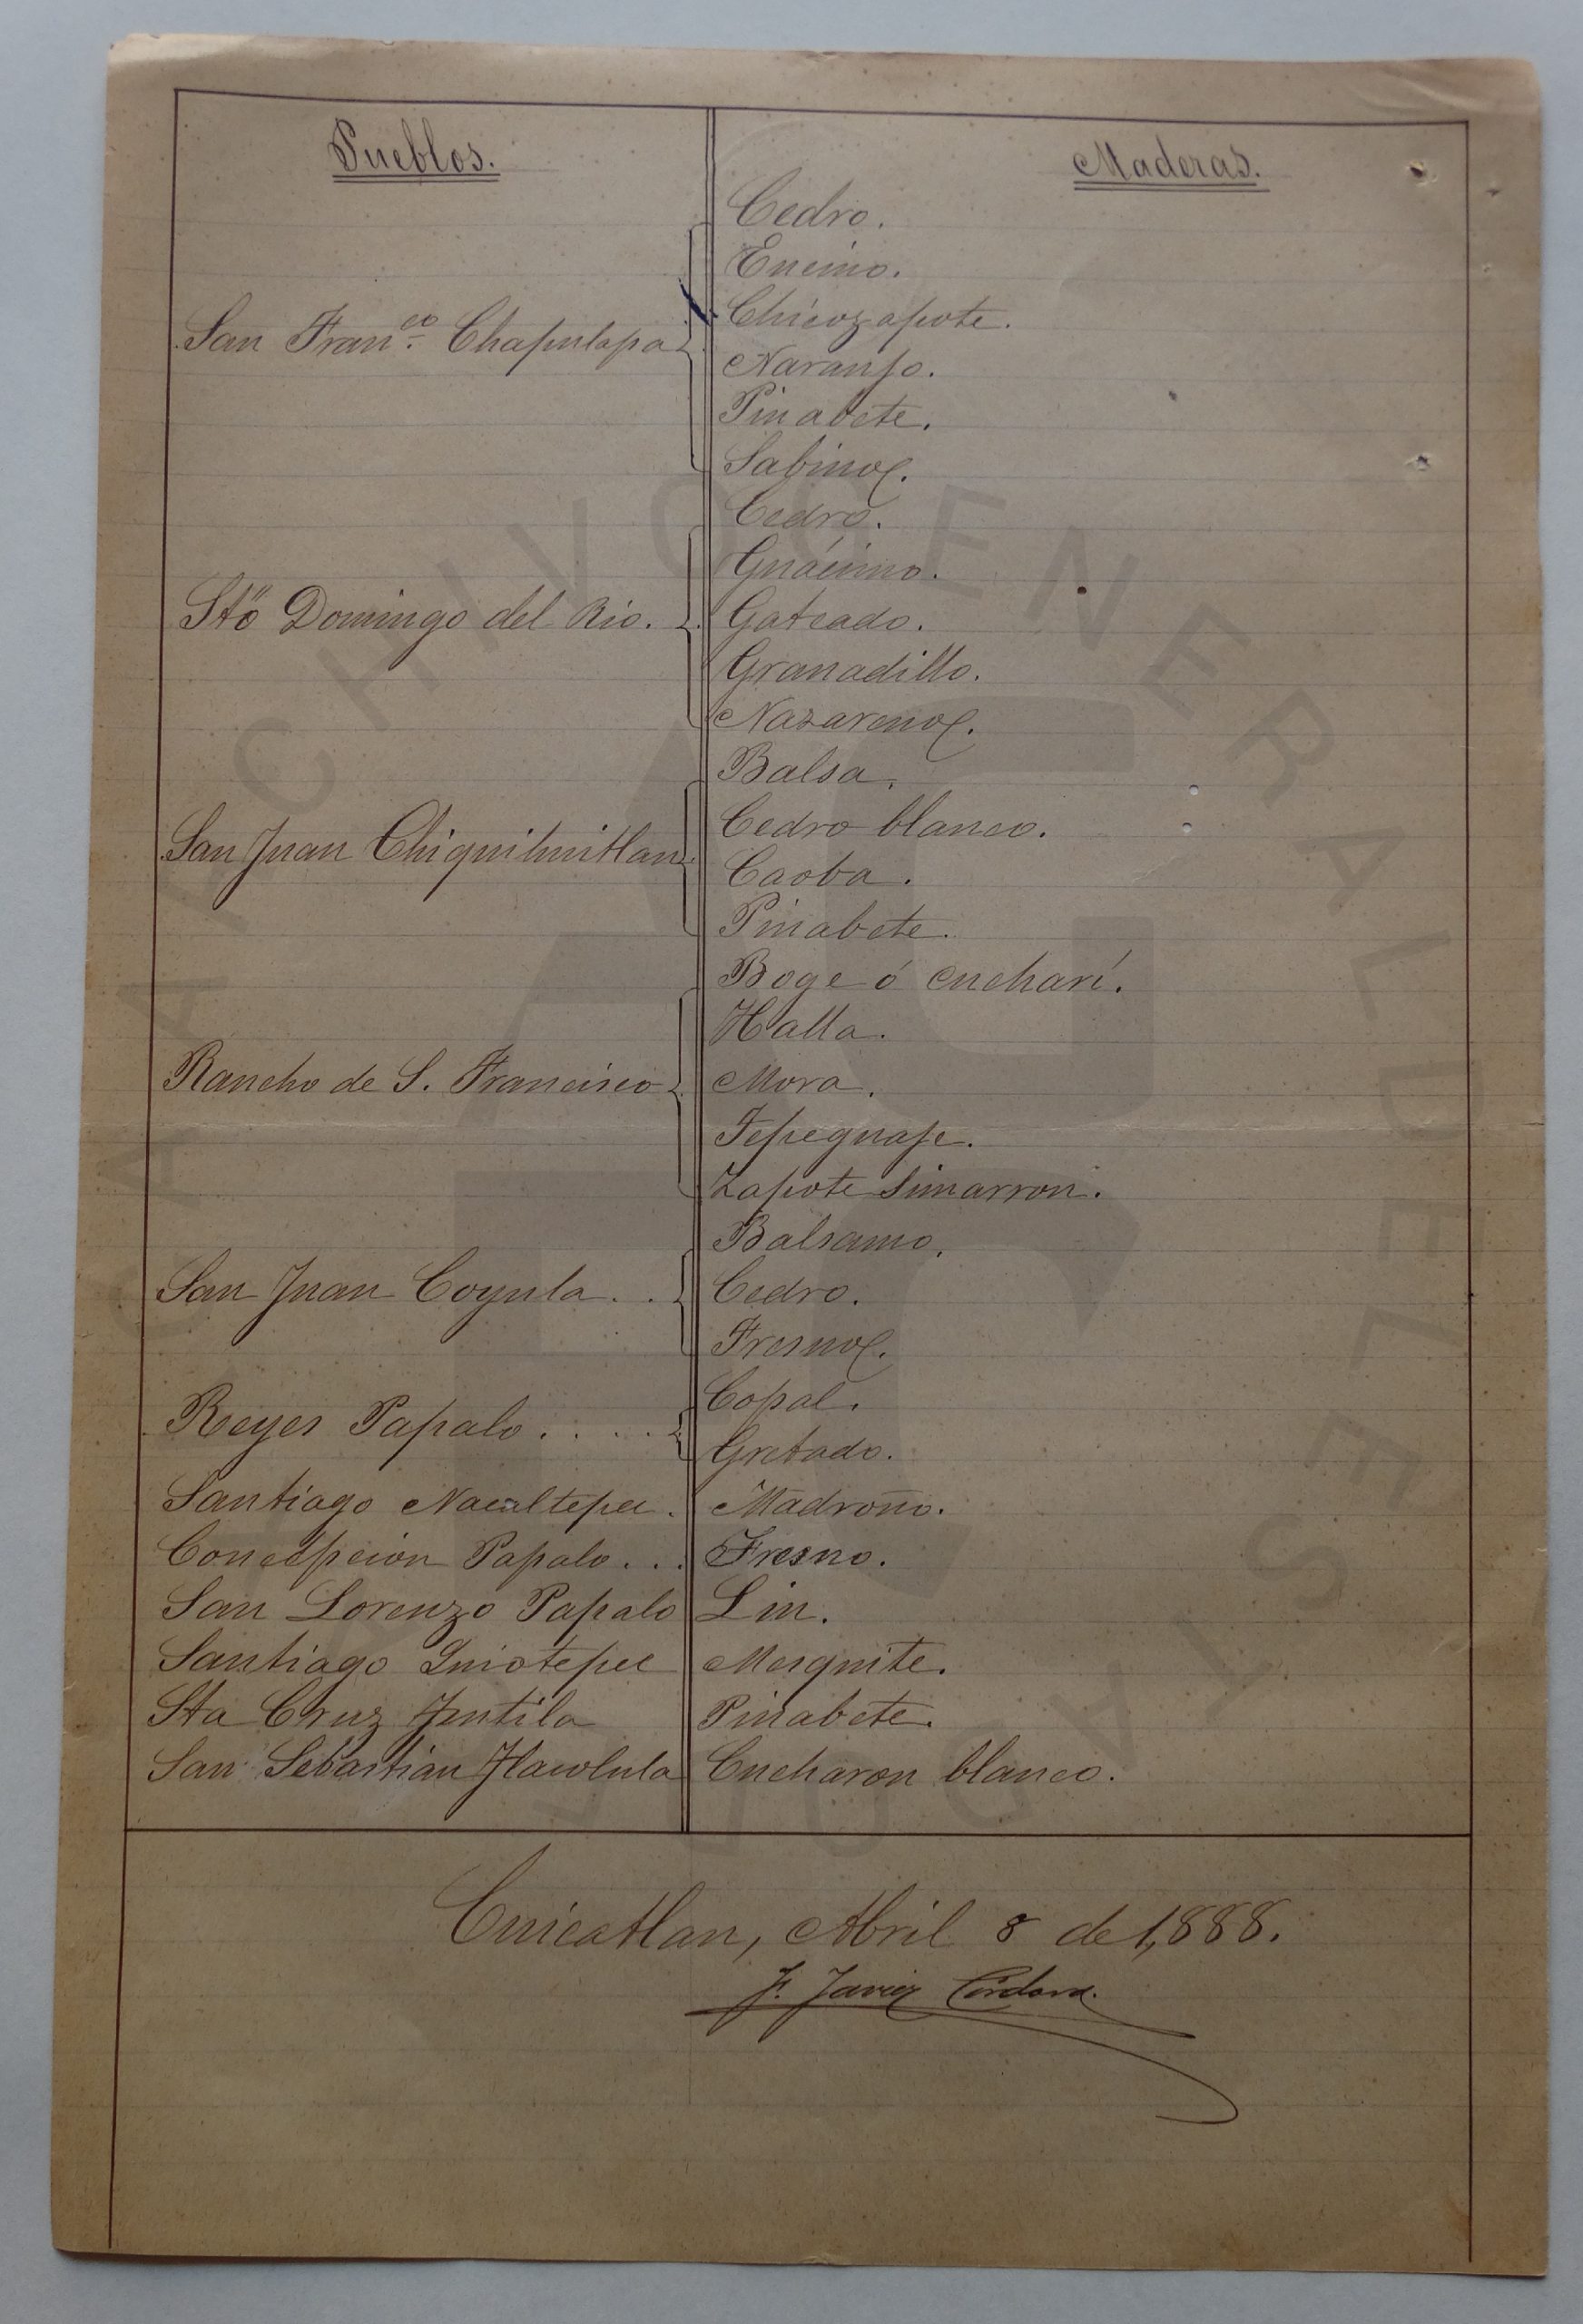 Pueblos.
Maderas.
Cedro.
Encino.
Chicozapote.
San Fran.co Chapulapa
Naranjo.
Pinabete.
Sabino.
Cedro.
Guácimo.
Sto Domingo del Rio.
Gateado.
Granadillo.
Nazareno.
Balsa.
Cedro blanco.
San Juan Chiquihuitlan
Caoba.
Pinabete.
Boge ó cucharí.
Halla.
Rancho de S. Francisco
Mora.
Tepeguaje.
Zapote simarron.
Balsamo.
San Juan Coyula . .
Cedro.
Fresno.
Copal.
Reyes Papalo . . . . .
Gretado.
Santiago Nacaltepec.
Madroño.
Concepcion Papalo . . .
Fresno.
San Lorenzo Papalo
Lin.
Santiago Quiotepec
Mesquite.
Sta Cruz Jutila
Pinabete.
San Sebastian Tlacolula
Cucharon blanco.
Cuicatlan, Abril 8 de 1,888.
F. Javier Córdova.
ARCHIVO GENERAL DEL ESTADO DE OAXACA